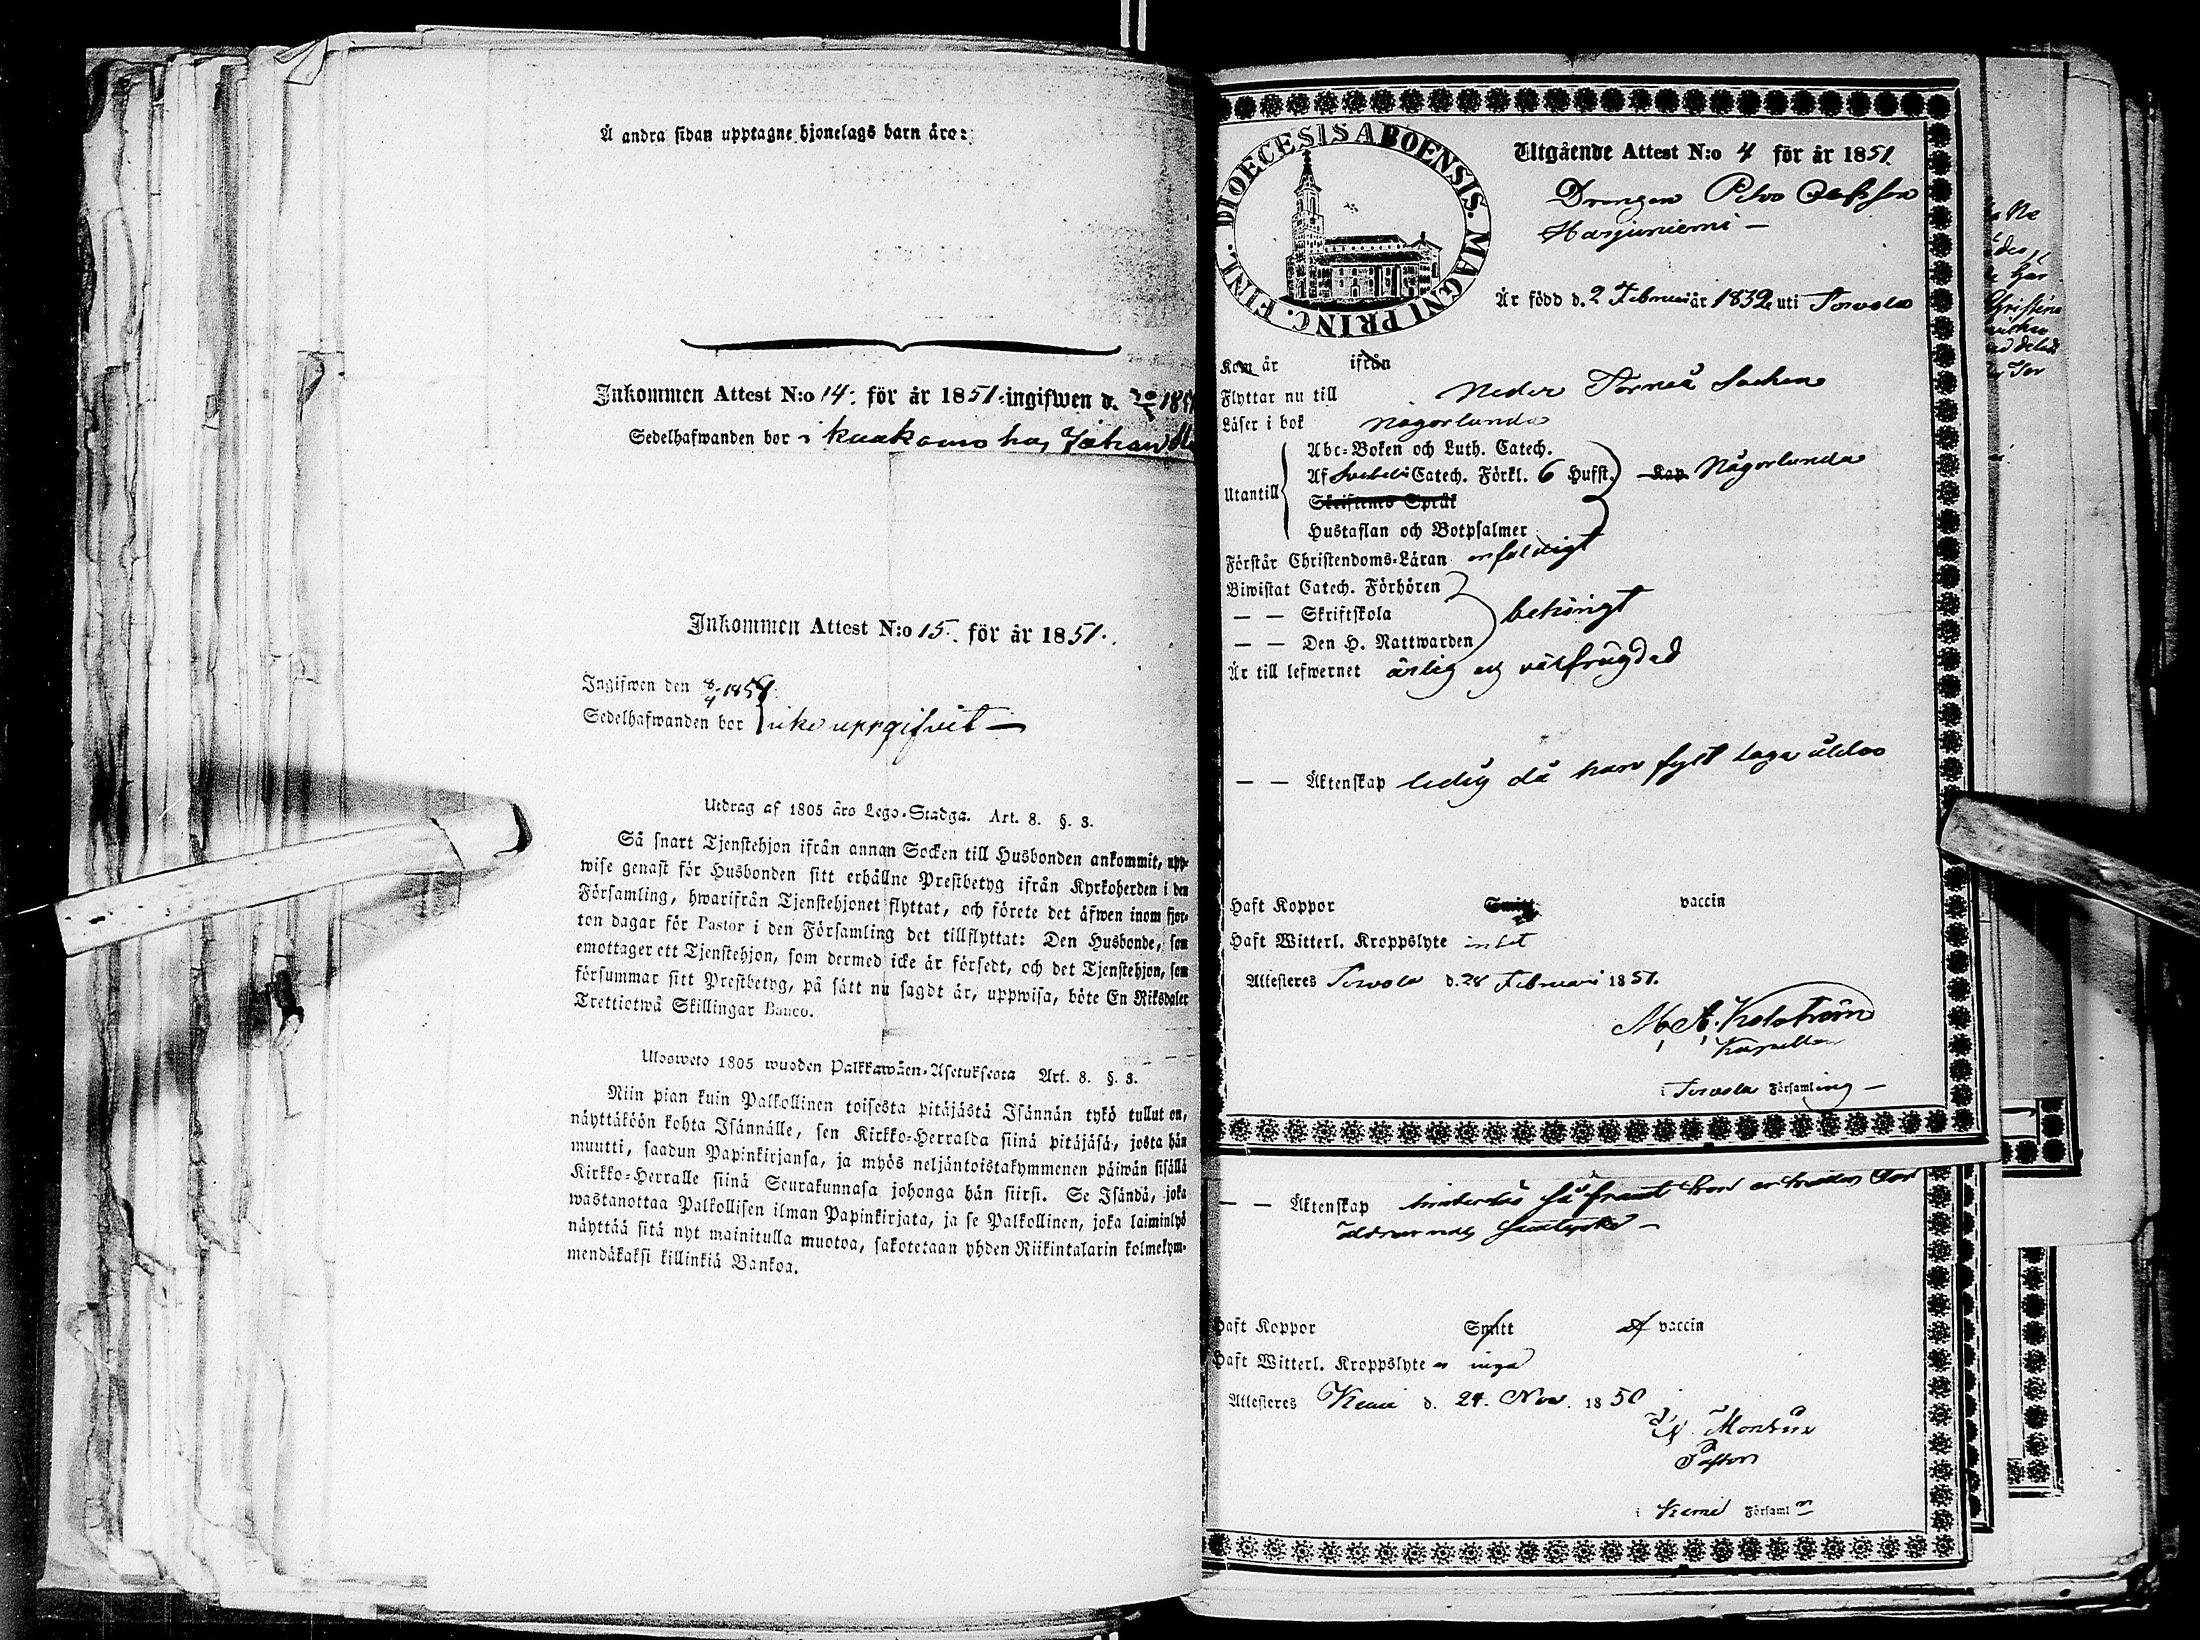 Å andra sidan upptagne hjonelags barn äro:
Inkommen Attest N:o 14. för år 1851. ingifwen d.
Sedelhafwanden bor i kuakamo hos Johan
Inkommen Attest N:o 15. för år 1851.
Ingifwen den 8/4 1851.
Sedelhafwanden bor icke uppgifvit —
Utdrag af 1805 års Lego-Stadga. Art. 8. §. 3.
Så snart Tjenstehjon ifrån annan Socken till Husbonden ankommit, upp-
wise genast för Husbonden sitt erhållne Prestbetyg ifrån Kyrkoherden i den
Församling, hwarifrån Tjenstehjonet flyttat, och förete det äfwen inom fjor-
ton dagar för Pastor i den Församling det tillflyttat: Den Husbonde, som
emottager ett Tjenstehjon, som dermed icke är försedt, och det Tjenstehjon, som
försummar sitt Prestbetyg, på sätt nu sagdt är, uppwisa, böte En Riksdaler
Trettiotwå Skillingar Banco.
Ulosweto 1805 wuoden Palkkawäen-Asetuksesta Art. 8. §. 3.
Niin pian kuin Palkollinen toisesta pitäjästä Isännän tykö tullut on,
näyttäköön kohta Isännälle, sen Kirkko-Herralda siinä pitäjäsä, josta hän
muutti, saadun Papinkirjansa, ja myös neljäntoistakymmenen päiwän sisällä
Kirkko-Herralle siinä Seurakunnasa johonga hän siirsi. Se Isändä, joka
wastanottaa Palkollisen ilman Papinkirjata, ja se Palkollinen, joka laiminlyö
näyttää sitä nyt mainitulla muotoa, sakotetaan yhden Riikintalarin kolmekym-
mendäkaksi killinkiä Bankoa.
DIOECESIS ABOENSIS. MAGNI PRINC. FINL.
Utgående Attest N:o 4 för år 1851.
Drengen Petter Olofsson
Harjuniemi —
Är född d. 2 Februari år 1832 uti Torvola
Kom år ifrån
Flyttar nu till Neder Torneå Socken
Läser i bok någorlunda
Utantill
Abc-Boken och Luth. Catech.
Af Svebeli Catech. Förkl. 6 Hufst. Kap. Någorlunda
Skriftenes Språk
Hustaflan och Botpsalmer
Förstår Christendoms-Läran enfaldigt
Biwistat Catech. Förhören
— — Skriftskola behörigt
— — Den H. Nattwarden
Är till lefwernet ärlig og välfrägdad
— — Äktenskap ledig då han fylt laga ålder
Haft Koppor Smitt vaccin
Haft Witterl. Kroppslyte intet
Attesteres Torvola d. 28 Februari 1851.
M. A. Kolström
Kapellan
i Torvola Församling —
— — Äktenskap
Haft Koppor Smitt af vaccin
Haft Witterl. Kroppslyte inga
Attesteres Kemi d. 24. Nov. 1850
Pastor
i Kemi Församl